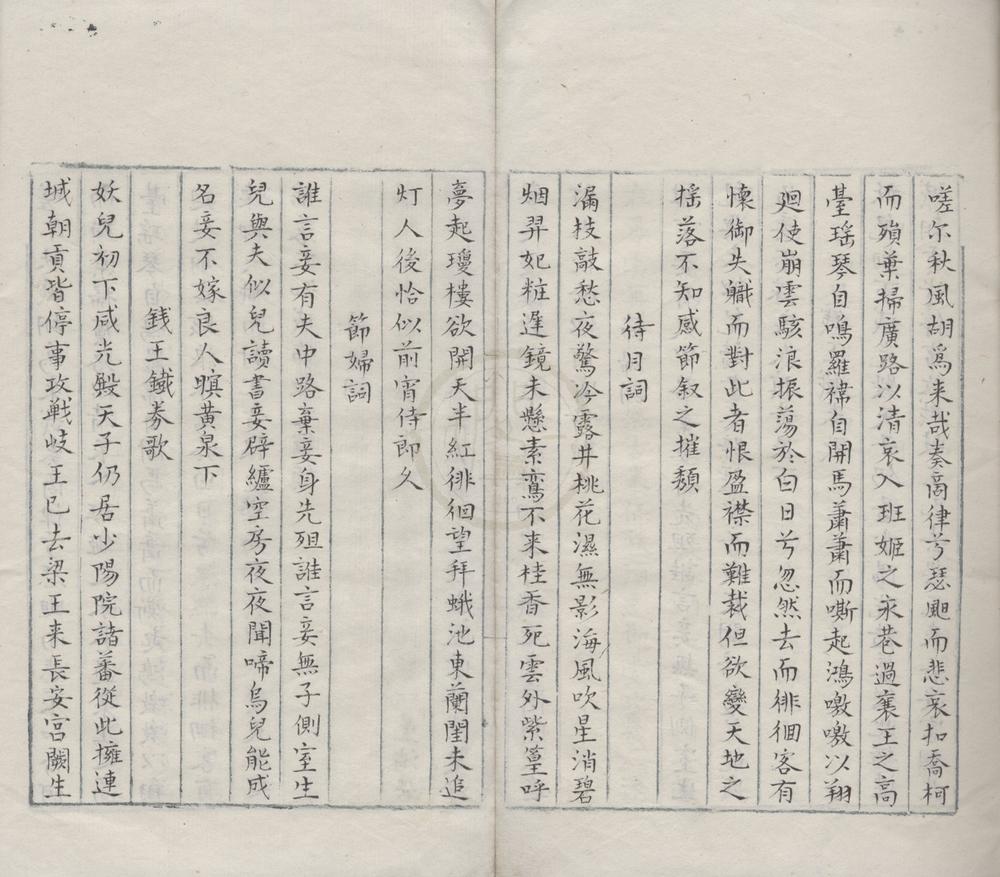 嗟尓秋風胡為来哉奏商律兮瑟颭而悲哀扣喬柯
而殞葉掃廣路以清哀入班姬之永巷過襄王之高
臺瑶琴自鳴羅幃自開馬蕭蕭而嘶起鴻嗷嗷以翔
廻使崩雲駭浪振蕩於白日兮忽然去而徘徊客有
懐御失職而對此者恨盈襟而難裁但欲變天地之
揺落不知感節叙之摧頽
待月詞
漏枝敲愁夜驚冷露井桃花濕無影海風吹星消碧
烟羿妃粧遲鏡未懸素鸞不来桂香死雲外紫篁呼
夢起瓊樓欲開天半紅徘徊望拜蛾池東蘭閨未追
灯人後恰似前宵待郎久
節婦詞
誰言妾有夫中路棄妾身先殂誰言妾無子側室生
兒與夫似兒讀書妾辟纑空房夜夜聞啼烏兒能成
名妾不嫁良人瞑黄泉下
銭王鐵券歌
妖兒初下咸光殿天子仍居少陽院諸蕃從此擁連
城朝貢皆停事攻戦岐王已去梁王来長安宫闕生